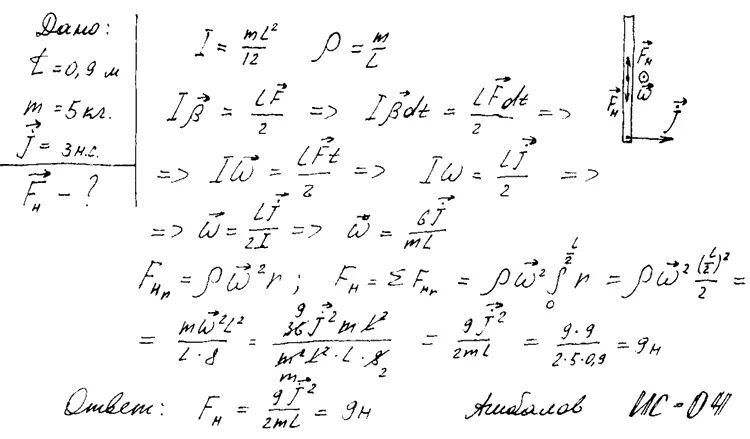 Дано:
L = 0,9 м
m = 5 кг.
J⃗ = 3 н.с.
F⃗н - ?
I = mL²/12 ρ = m/L
Iβ⃗ = LF⃗/2 => Iβ⃗dt = LF⃗dt/2 =>
=> Iω⃗ = LF⃗t/2 => Iω = LJ⃗/2 =>
=> ω⃗ = LJ⃗/2I => ω⃗ = 6J⃗/mL
Fнr = ρω⃗²r ; Fн = ΣFнr = ρω⃗² ∫₀^(L/2) r = ρω⃗² (L/2)²/2 =
= mω⃗²L²/L·8 = 36J⃗²mL²/m²L²·L·8 = 9J⃗²/2mL = 9·9/2·5·0,9 = 9н
Ответ: Fн = 9J⃗²/2mL = 9н
F⃗н
F⃗н
ω⃗
J⃗